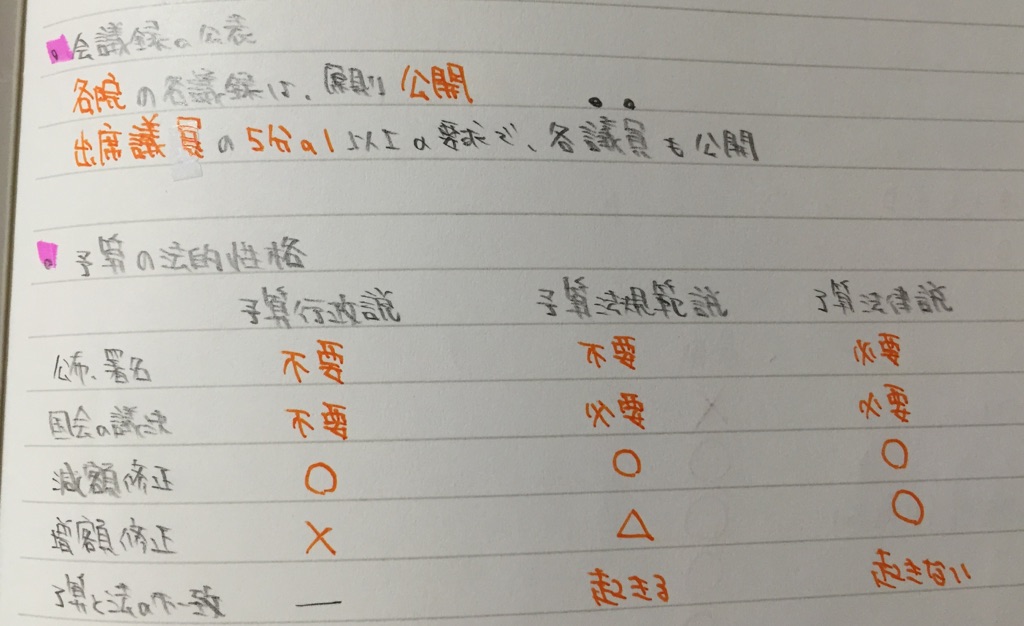 会議録の公表
各院の会議録は、原則公開
出席議員の5分の1以上の要求で、各議員も公開
予算の法的性格
予算行政説 予算法規範説 予算法律説
公布、署名 不要 不要 必要
国会の議決 不要 必要 必要
減額修正 ○ ○ ○
増額修正 × △ ○
予算と法の不一致 — 起きる 起きない